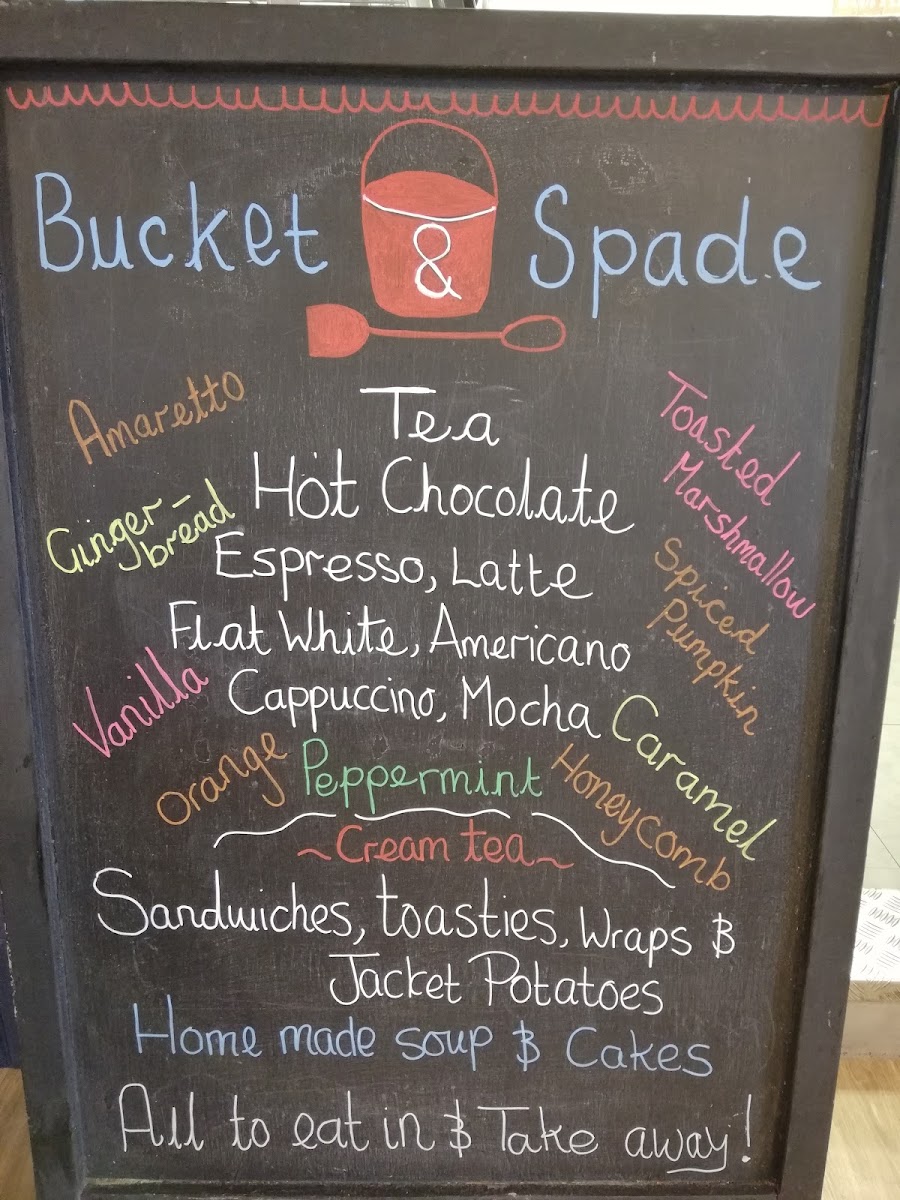 Bucket & Spade
Amaretto
Ginger-
bread
Vanilla
Orange
Tea
Hot Chocolate
Espresso, Latte
Flat White, Americano
Cappuccino, Mocha
Peppermint
Toasted
Marshmallow
Spiced
Pumpkin
Caramel
Honeycomb
~Cream tea~
Sandwiches, toasties, Wraps &
Jacket Potatoes
Home made soup & Cakes
All to eat in & Take away!